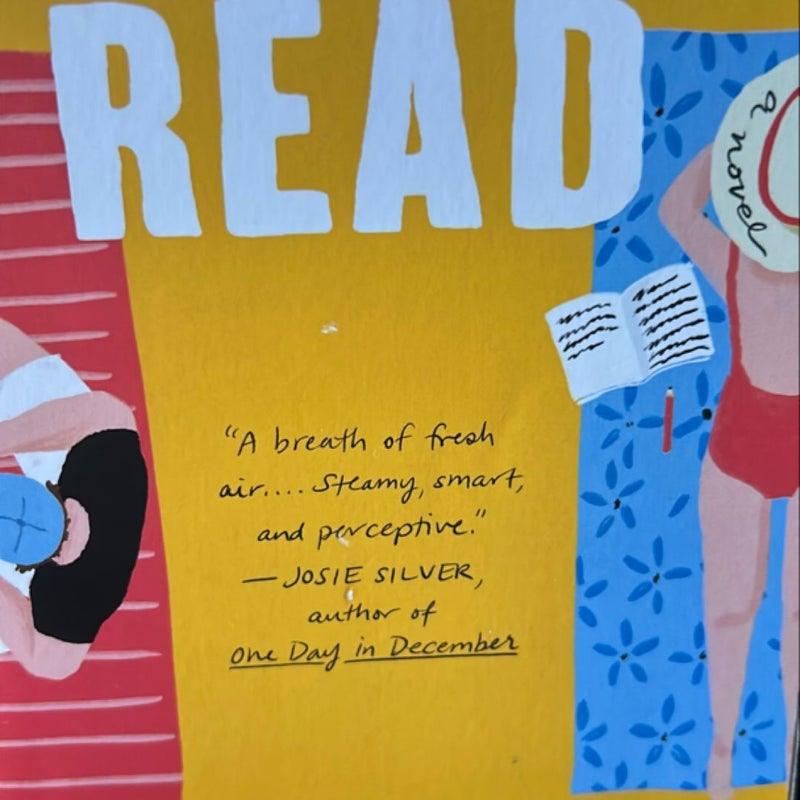 READ
a novel
"A breath of fresh
air.... Steamy, smart,
and perceptive."
— JOSIE SILVER,
author of
One Day in December